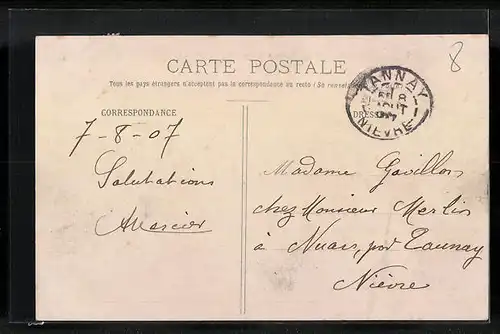 8
CARTE POSTALE
Tous les pays étrangers n'acceptent pas la correspondance au recto (Se rensei
CORRESPONDANCE
7-8-07
Salutations
TANNAY
8
AOUT
NIÈVRE
Madame Gavillon
chez Monsieur Merlin
à Nuars, par Tannay
Nièvre